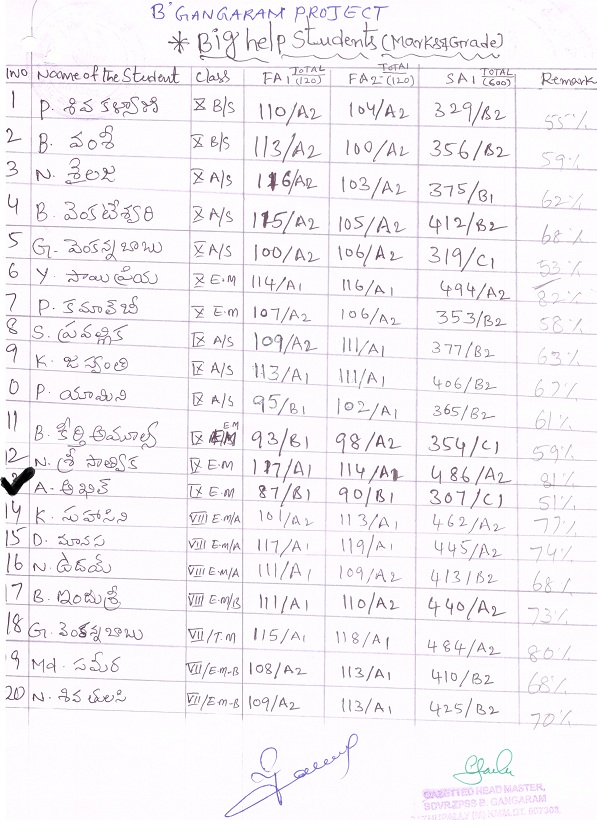 B'GANGARAM PROJECT
* Big help Students (Marks&Grade)
SNO Name of the Student Class FA1 TOTAL (120) FA2 TOTAL (120) SA1 TOTAL (600) Remark
1 P. శివ కళ్యాణి X B/S 110/A2 104/A2 329/B2 55%
2 B. వంశీ X B/S 113/A2 100/A2 356/B2 59%
3 N. శైలజ X A/S 116/A2 103/A2 375/B1 62%
4 B. వెంకటేశ్వరి X A/S 115/A2 105/A2 412/B2 68%
5 G. వెంకన్న బాబు X A/S 100/A2 106/A2 319/C1 53%
6 Y. సాయి ప్రియ X E.M 114/A1 116/A1 494/A2 82%
7 P. కమాల్‌బీ X E.M 107/A2 106/A2 353/B2 58%
8 S. ప్రవల్లిక IX A/S 109/A2 111/A1 377/B2 63%
9 K. జస్వంతి IX A/S 113/A1 111/A1 406/B2 67%
0 P. యామిని IX A/S 95/B1 102/A1 365/B2 61%
11 B. కీర్తి అమూల్య IX E.M 93/B1 98/A2 354/C1 59%
12 N. శ్రీ సాత్విక IX E.M 117/A1 114/A1 486/A2 81%
A. అఖిల్ IX E.M 87/B1 90/B1 307/C1 51%
14 K. సుహాసిని VIII E.M/A 101/A2 113/A1 462/A2 77%
15 D. మానస VIII E.M/A 117/A1 119/A1 445/A2 74%
16 N. ఉదయ్ VIII E.M/A 111/A1 109/A2 413/B2 68%
17 B. ఇందుశ్రీ VIII E.M/B 111/A1 110/A2 440/A2 73%
18 G. వెంకన్నబాబు VII/T.M 115/A1 118/A1 484/A2 80%
19 Md. సమీర VII/E.M-B 108/A2 113/A1 410/B2 68%
20 N. శివ తులసి VII/E.M-B 109/A2 113/A1 425/B2 70%
GAZETTED HEAD MASTER,
B. GANGARAM